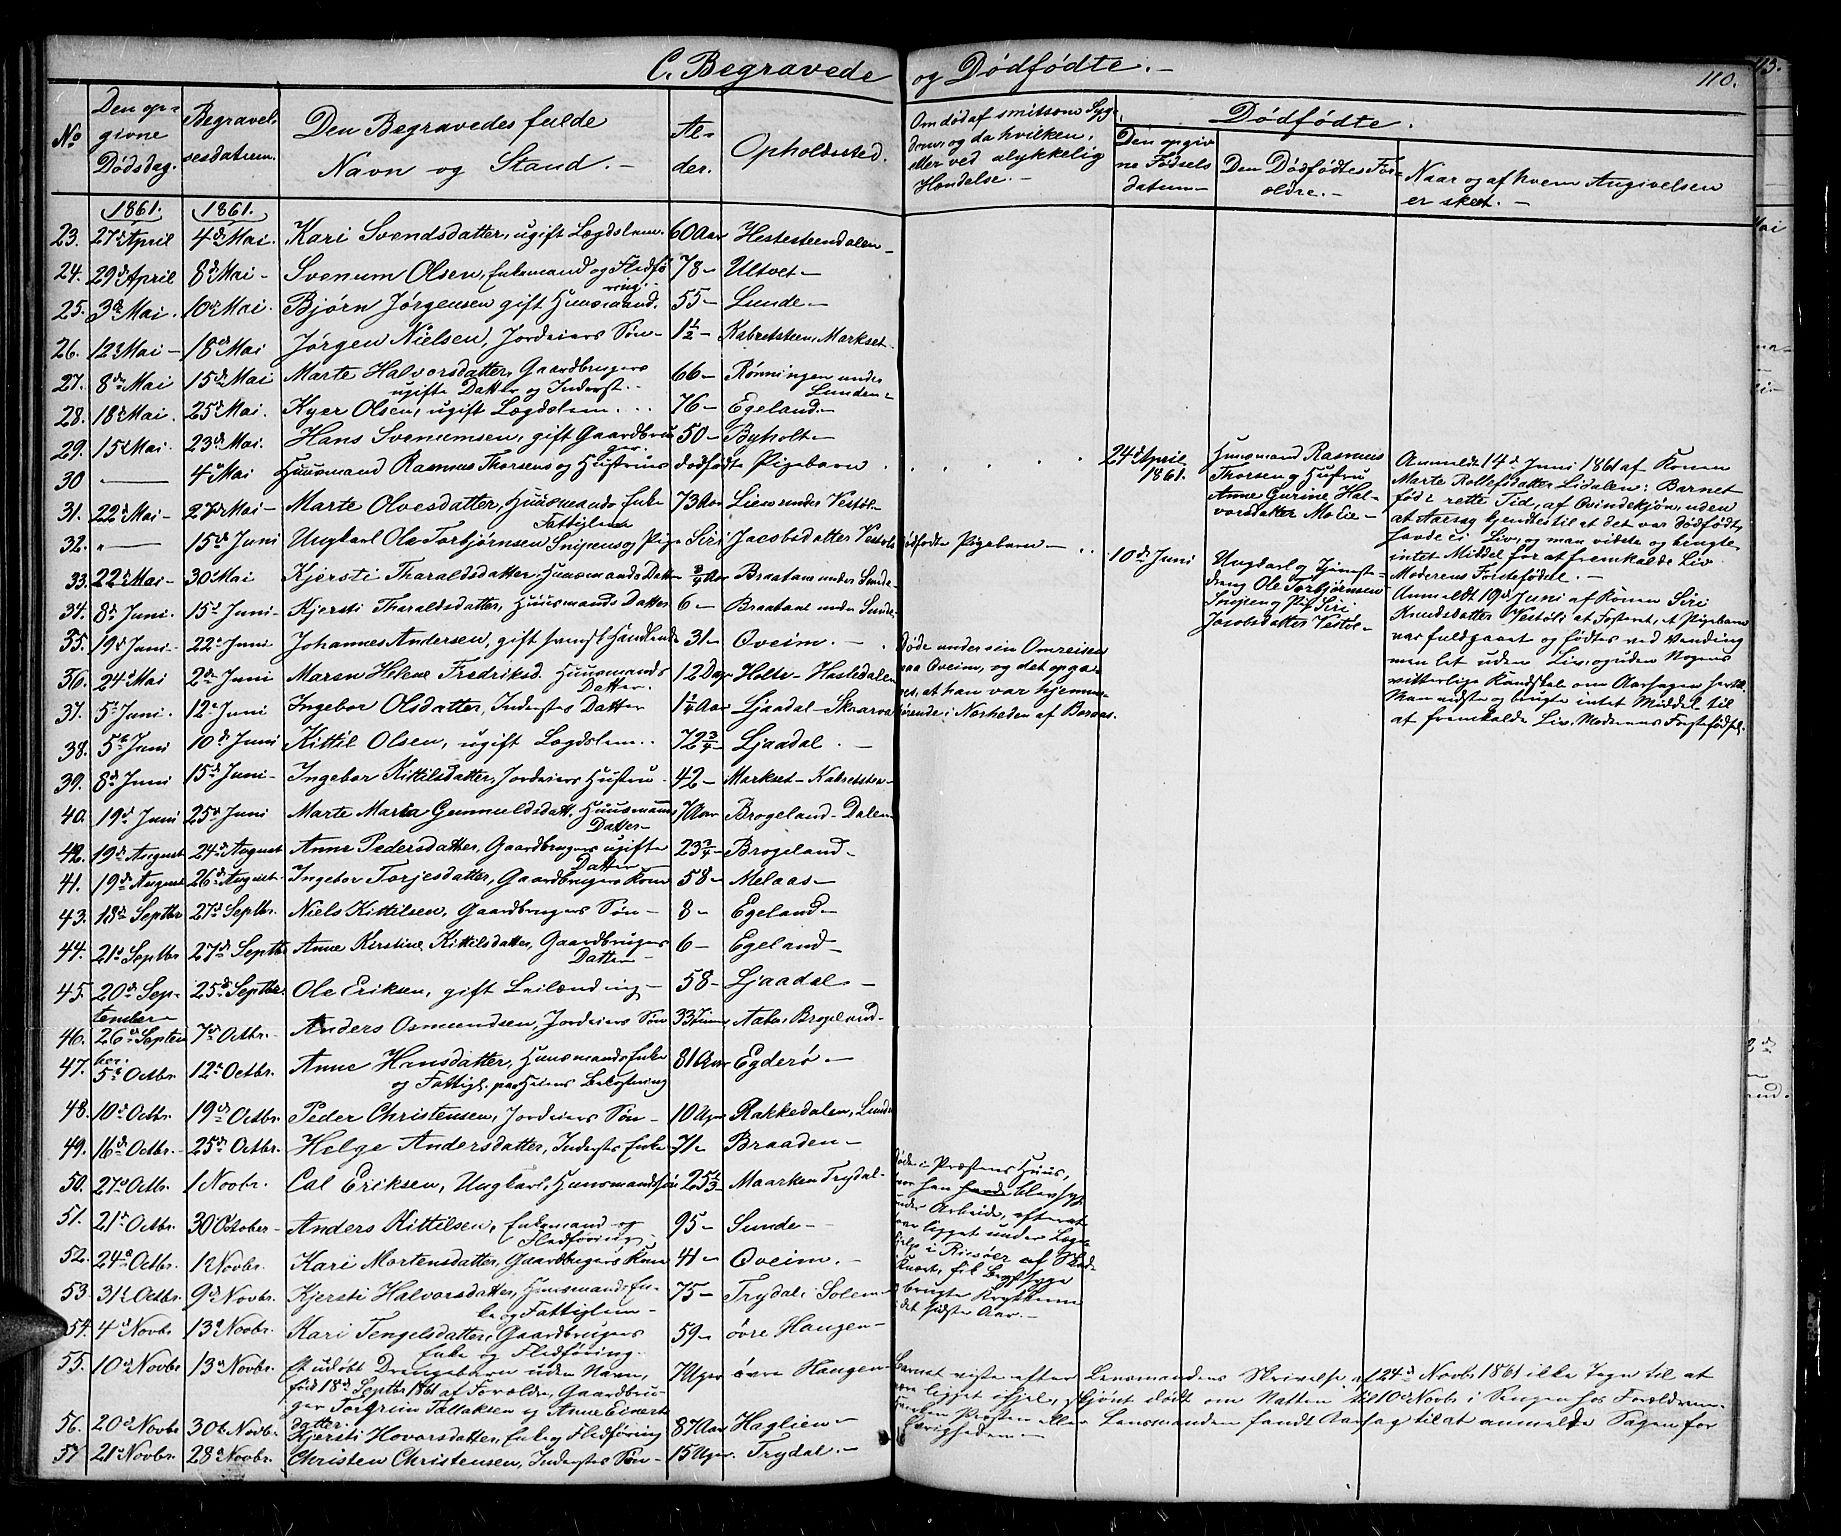 C. Begravede og Dødfødte.
110.
No
Den opgivne Dødsdag.
Begravelsesdatum.
Den Begravedes fulde Navn og Stand.
Alder.
Opholdssted.
Om død af smitsom Sygdom, og da hvilken, eller ved ulykkelig Hændelse.
Dødfødte.
Den opgivne Fødselsdatum
Den Dødfødtes Forældre.
Naar og af hvem Angivelsen er skeet.
1861. 1861.
23. 27de April 4de Mai. Kari Svendsdatter, ugift Lægdslem. 60 Aar Hestesteendalen
24. 29de April 8de Mai Svenum Olsen, Enkemand og Fledføring. 78 Ultvet
25. 3de Mai. 10de Mai. Bjørn Jørgensen gift Huusmand. 55 Lunde
26. 12te Mai 18de Mai Jørgen Nielsen, Jordeiers Søn 1 1/2 Kabretsteen, Markset.
27. 8de Mai 15de Mai Marte Halvorsdatter, Gaardbrugers
ugifte Datter og Inderst. 66 Rønningen under Lunden
28. 18de Mai. 25de Mai. Kyer Olsen, ugift Lægdslem 76 Egeland.
29. 15de Mai. 23de Mai. Hans Svenumsen, gift Gaardbruger. 50 Byholt
30 4de Mai Huusmand Rasmus Thorsens og Hustrues dødfødte Pigebarn
24de April 1861.
Huusmand Rasmus
Thorsen og Hustru
Anne Gurine Halvorsdatter
Anmeldt 14de Juni 1861 af Konen
Marte Rollefsdatter Lidalen: Barnet
født rette Tid, af Qvindekjøn, uden
at Aarsag kjendtes til at det var dødfødt,
havde ei Liv, og man vidste og brugte
intet Middel for at fremkalde Liv
Moderens Førstefødsel.
31. 22de Mai 27de Mai Marte Olvesdatter, Huusmands Enke
Fattiglem 73 Aar Lien under Vestøl
32. 15de Juni Ungkarl Ole Torbjørnsen Snipens og Pige Siri Jacobsdatters Vestøls dødfødte Pigebarn
10de Juni
Ungkarl og Tjenestedreng Ole Torbjørnsen
Snipen og Pig. Siri
Jacobsdatter Vestøl
Anmeldt 19de Juni af Konen Siri
Knudsdatter Vestøl: at Fosteret, et Pigebarn
var fuldgaaet og fødtes ved Vending
men let uden Liv, og uden Nogens
vitterlige Kundskab om Aarsagen hertil.
Man vidste og brugte intet Middel til
at fremkalde Liv. Moderens Førstefødsel.
33. 22de Mai 30 Mai Kjersti Tharaldsdatter, Huusmands Datter 3/4 Aar Braatane under Lunde
34. 8de Juni. 15de Juni Kjersti Tharaldsdatter, Huusmands Datter 6 Braatane under Lunde
35. 19de Juni 22de Juni Johannes Andersen, gift Handlende 31 Qveim.
Døde under sin Omreisen
paa Qveim, og det opgaves, at han var hjemmehørende i Nærheden af Boraas.
36. 24de Mai 2den Juni Maren Helene Fredriksd. Huusmands
Datter. 12 Dage Holte Hestedalen
37. 5te Juni. 12te Juni Ingebor Olsdatter, Inderstes Datter 1 1/4 Aar Ljaadal Skarva
38. 5te Juni 10de Juni Kittil Olsen, ugift Lægdslem 72 3/4 Ljaadal.
39. 8de Juni 15de Juni Ingebor Kittilsdatter, Jordeiers Hustru 42 Markset Kabretsten
40. 19de Juni 25de Juni Marte Maria Gunmuldsdatt. Huusmands
Datter 7 Aar Brogeland Dalen
42. 19de August 24de August Anne Pedersdatter, Gaardbrugers ugifte
Datter 23 3/4 Brogeland
41. 19de August 26de August. Ingebor Torjesdatter, Gaardbrugers Kone 58 Melaas
43. 18de Septbr 27de Septbr. Niels Kittilsen, Gaardbrugers Søn 8 Egeland
44. 21de Septbr 27de Septbr Anne Kirstine Kittilsdatter, Gaardbrugers
Datter 6 Egeland
45. 20de September 25de Septbr. Ole Eriksen, gift Leilænding 58 Ljaadal
46. 26de September. 7de Octbr. Anders Osmundsen, Jordeiers Søn 33 Brogeland
47. 5te Octbr. 12te Octbr. Anne Hansdatter, Huusmands Enke
og Fattigl. paa Heiens Bekostning 81 Aar Egderø
48. 10de Octbr. 19de Octbr. Peder Christensen, Jordeiers Søn 10 Uger Rakkedalen, Lunde
49. 16de Octbr. 25de Octbr. Helge Andersdatter, Inderstes Enke 71 Braaden
50. 27de Octbr. 1 Novbr. Cal Eriksen, Ungkarl, Huusmandssøn 25 1/3 Maarken Trydal
Døde i Præstens Huus,
hvor han havde blev syg
under Arbeide, efterat
have ligget under Læge
hjelp i Riisøer af
fik Brystsyge
brugte Krykkerne
det sidste Aar.
51. 21de Octbr. 30 October Anders Kittilsen, Enkemand og
Fledføring 95 Lunde
52. 24de Octbr. 1 Novbr. Kari Mortensdatter, Gaardbrugers Kone 41 Qveim.
53. 31te Octbr. 9de Novbr. Kjersti Halvorsdatter, Huusmands Enke og Fattiglem 75 Trydal, Solem
54. 4de Novbr 13de Novbr. Kari Tengelsdatter, Gaardbrugers
Enke og Fledføring. 59 øvre Haugen
55. 10de Novbr 13de Novbr. Et udøbt Drengebarn uden Navn,
født 18de Septbr 1861 af Forældre, Gaardbruger Torgrim Tallaksen og Anne Einertsdatter. 7 Uger øvre Haugen
Barnet viste efter Lensmandens Skrivelse af 24de Novbr 1861 ikke Tegn til at
være ligget ihjel, skjønt dødt om Natten til 10de Novbr i Sengen hos Forældrene.
Hverken Præsten eller Lensmanden fandt Aarsag til at anmelde Sagen for
Øvrigheden
56. 20de Novbr 30te Novbr. Kjersti Hovorsdatter, Enke og Fledføring 87 Aar Haglien
57 21de Novbr. 28de Novbr. Christen Christensen, Inderstes Søn 15 Uger. Trydal.